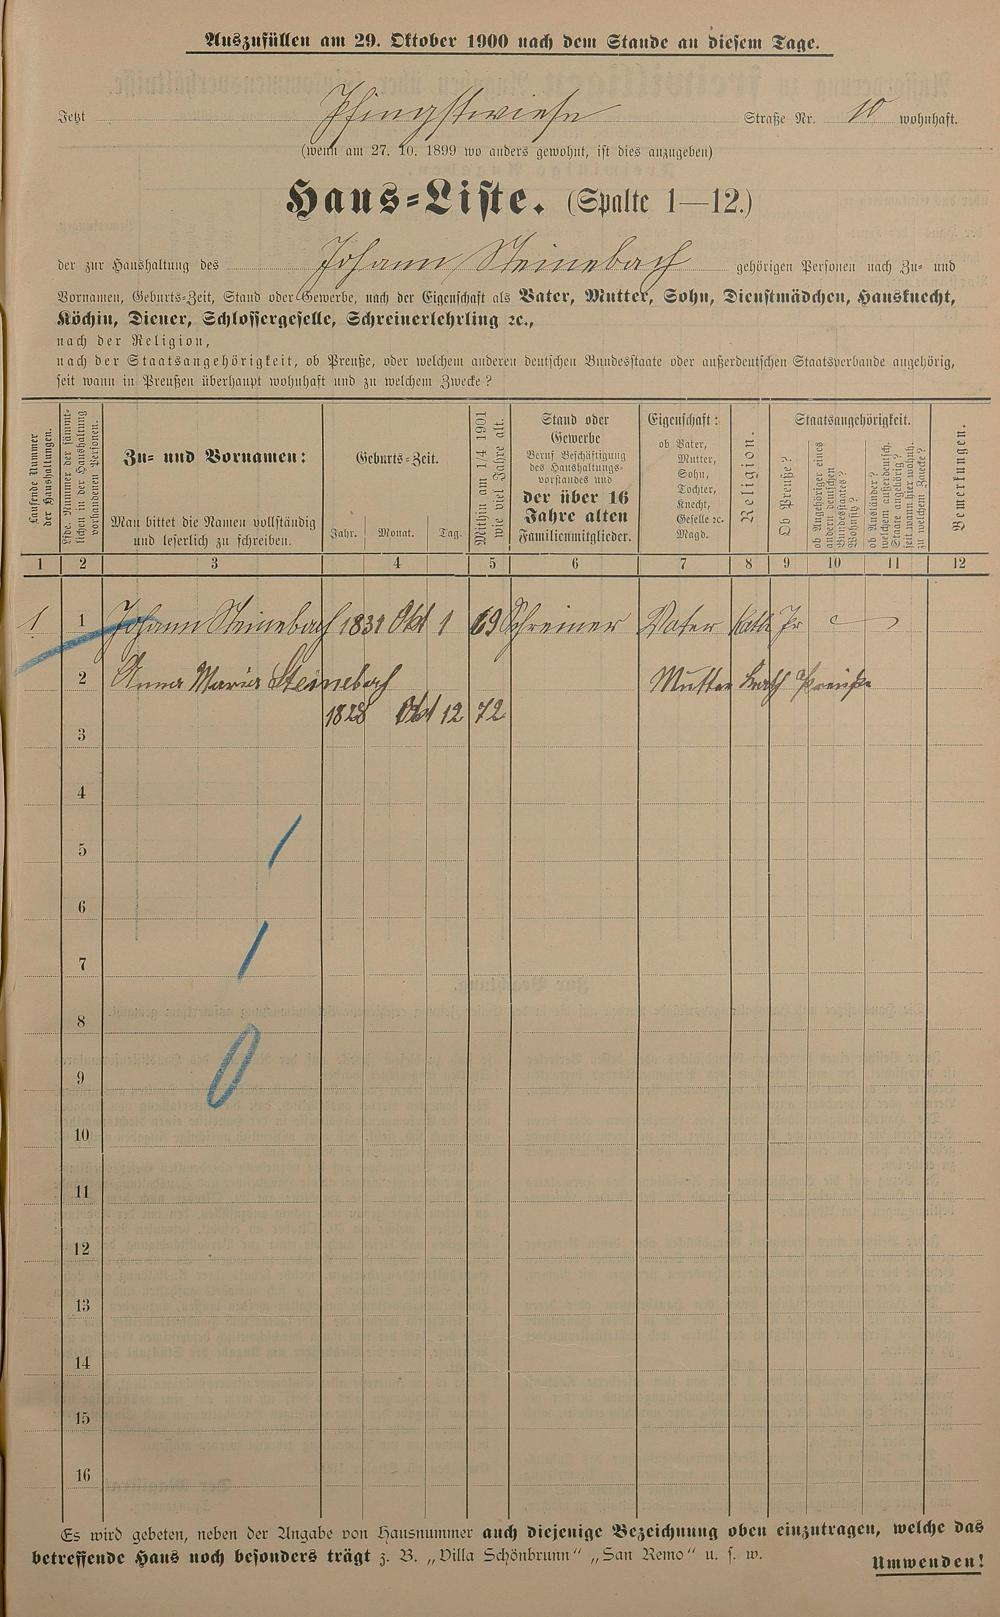 Auszufüllen am 29. Oktober 1900 nach dem Stande an diesem Tage.
Jetzt Pfingstwiese Straße Nr. 10 wohnhaft.
(wenn am 27. 10. 1899 wo anders gewohnt, ist dies anzugeben)
Haus-Liste. (Spalte 1—12.)
der zur Haushaltung des Johann Steinebach gehörigen Personen nach Zu- und
Vornamen, Geburts-Zeit, Stand oder Gewerbe, nach der Eigenschaft als Vater, Mutter, Sohn, Dienstmädchen, Hausknecht,
Köchin, Diener, Schlossergeselle, Schreinerlehrling ꝛc.,
nach der Religion,
nach der Staatsangehörigkeit, ob Preuße, oder welchem anderen deutschen Bundesstaate oder außerdeutschen Staatsverbande angehörig,
seit wann in Preußen überhaupt wohnhaft und zu welchem Zwecke?
Laufende Nummer
der Haushaltungen.
Lfde. Nummer der sämmt-
lichen in der Haushaltung
vorhandenen Personen.
Zu- und Vornamen:
Man bittet die Namen vollständig
und leserlich zu schreiben.
Geburts-Zeit.
Jahr. Monat. Tag.
Mithin am 1/4 1901
wie viel Jahre alt.
Stand oder
Gewerbe
Beruf Beschäftigung
des Haushaltungs-
vorstandes und
der über 16
Jahre alten
Familienmitglieder.
Eigenschaft:
ob Vater,
Mutter,
Sohn,
Tochter,
Knecht,
Geselle ꝛc.
Magd.
Religion.
Staatsangehörigkeit.
Ob Preuße?
ob Angehöriger eines
andern deutschen
Bundesstaates?
Wohnsitz?
ob Ausländer?
welchem außerdeutsch.
Staate angehörig?
seit wann hier wohnh.
zu welchem Zwecke?
Bemerkungen.
1 2 3 4 5 6 7 8 9 10 11 12
1 1 Johann Steinebach 1831 Okt 1 69 Schreiner Vater Kath Pr
2 Anna Maria Steinebach Mutter Kath Preuße
1828 Okt 12 72
3
4
5
6
7
8
9
10
11
12
13
14
15
16
Es wird gebeten, neben der Angabe von Hausnummer auch diejenige Bezeichnung oben einzutragen, welche das
betreffende Haus noch besonders trägt z. B. „Villa Schönbrunn" „San Remo" u. s. w.
Umwenden!